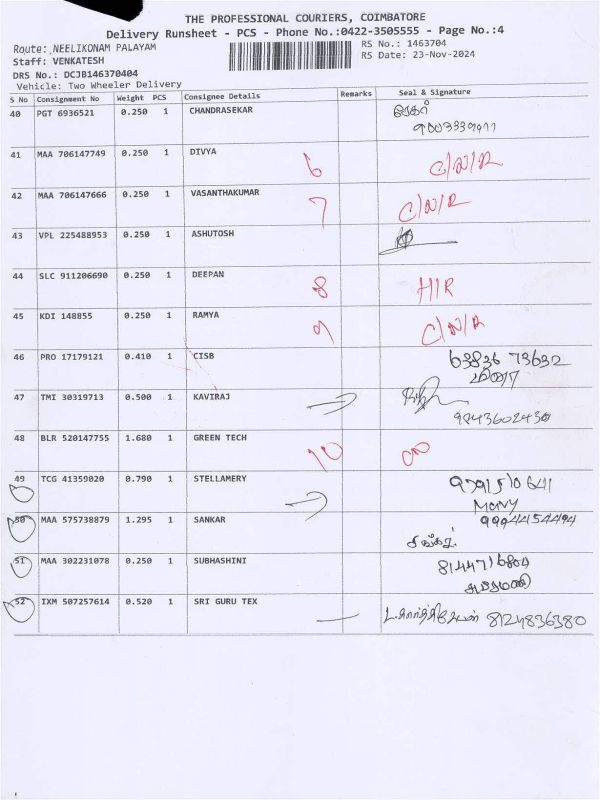 THE PROFESSIONAL COURIERS, COIMBATORE
Delivery Runsheet - PCS - Phone No.:0422-3505555 - Page No.:4
Route: NEELIKONAM PALAYAM RS No.: 1463704
Staff: VENKATESH RS Date: 23-Nov-2024
DRS No.: DCJB146370404
Vehicle: Two Wheeler Delivery
S No Consignment No Weight PCS Consignee Details Remarks Seal & Signature
40 PGT 6936521 0.250 1 CHANDRASEKAR சேகர்
41 MAA 706147749 0.250 1 DIVYA 6 C/N/R
42 MAA 706147666 0.250 1 VASANTHAKUMAR 7 C/N/R
43 VPL 225488953 0.250 1 ASHUTOSH
44 SLC 911206690 0.250 1 DEEPAN 8 HIR
45 KDI 148855 0.250 1 RAMYA 9 C/N/R
46 PRO 17179121 0.410 1 CISB 63836 73632
47 TMI 30319713 0.500 1 KAVIRAJ
9843602430
48 BLR 520147755 1.680 1 GREEN TECH 10
49 TCG 41359020 0.790 1 STELLAMERY
MONY
50 MAA 575738879 1.295 1 SANKAR 9994454494
51 MAA 302231078 0.250 1 SUBHASHINI 8144716804
52 IXM 507257614 0.520 1 SRI GURU TEX 8124836380